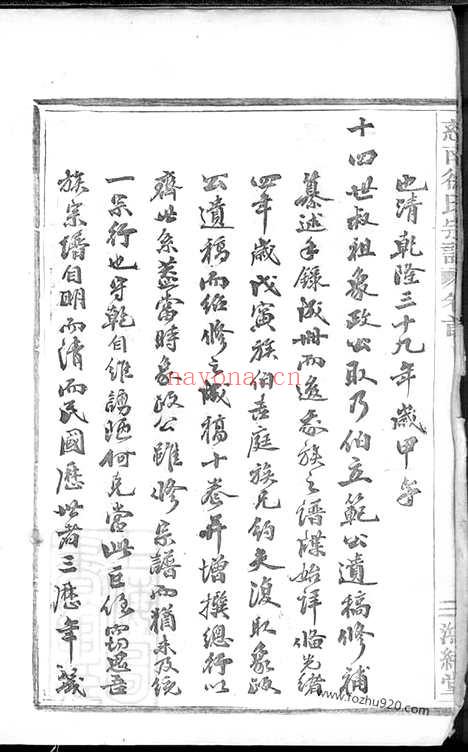 也清乾隆三十九年歲甲午
十四世叔祖象政公取乃伯立範公遺稿修補
纂述手錄成冊而遂我族之譜牒始詳临光緒
四年歲戊寅族伯吉庭族兄鈞夫復取象政
公遺稿而紹修之成稿十卷并增撰總行以
齊世系蓋當時象政公雖修宗譜而猶未及統
一宗行也守乾自維譾陋何克當此巨任竊思吾
族宗譜自明而清而民國歷世者三歷年
慈南徐氏宗譜
海經堂
nayona.cn
www.fozhu920.com